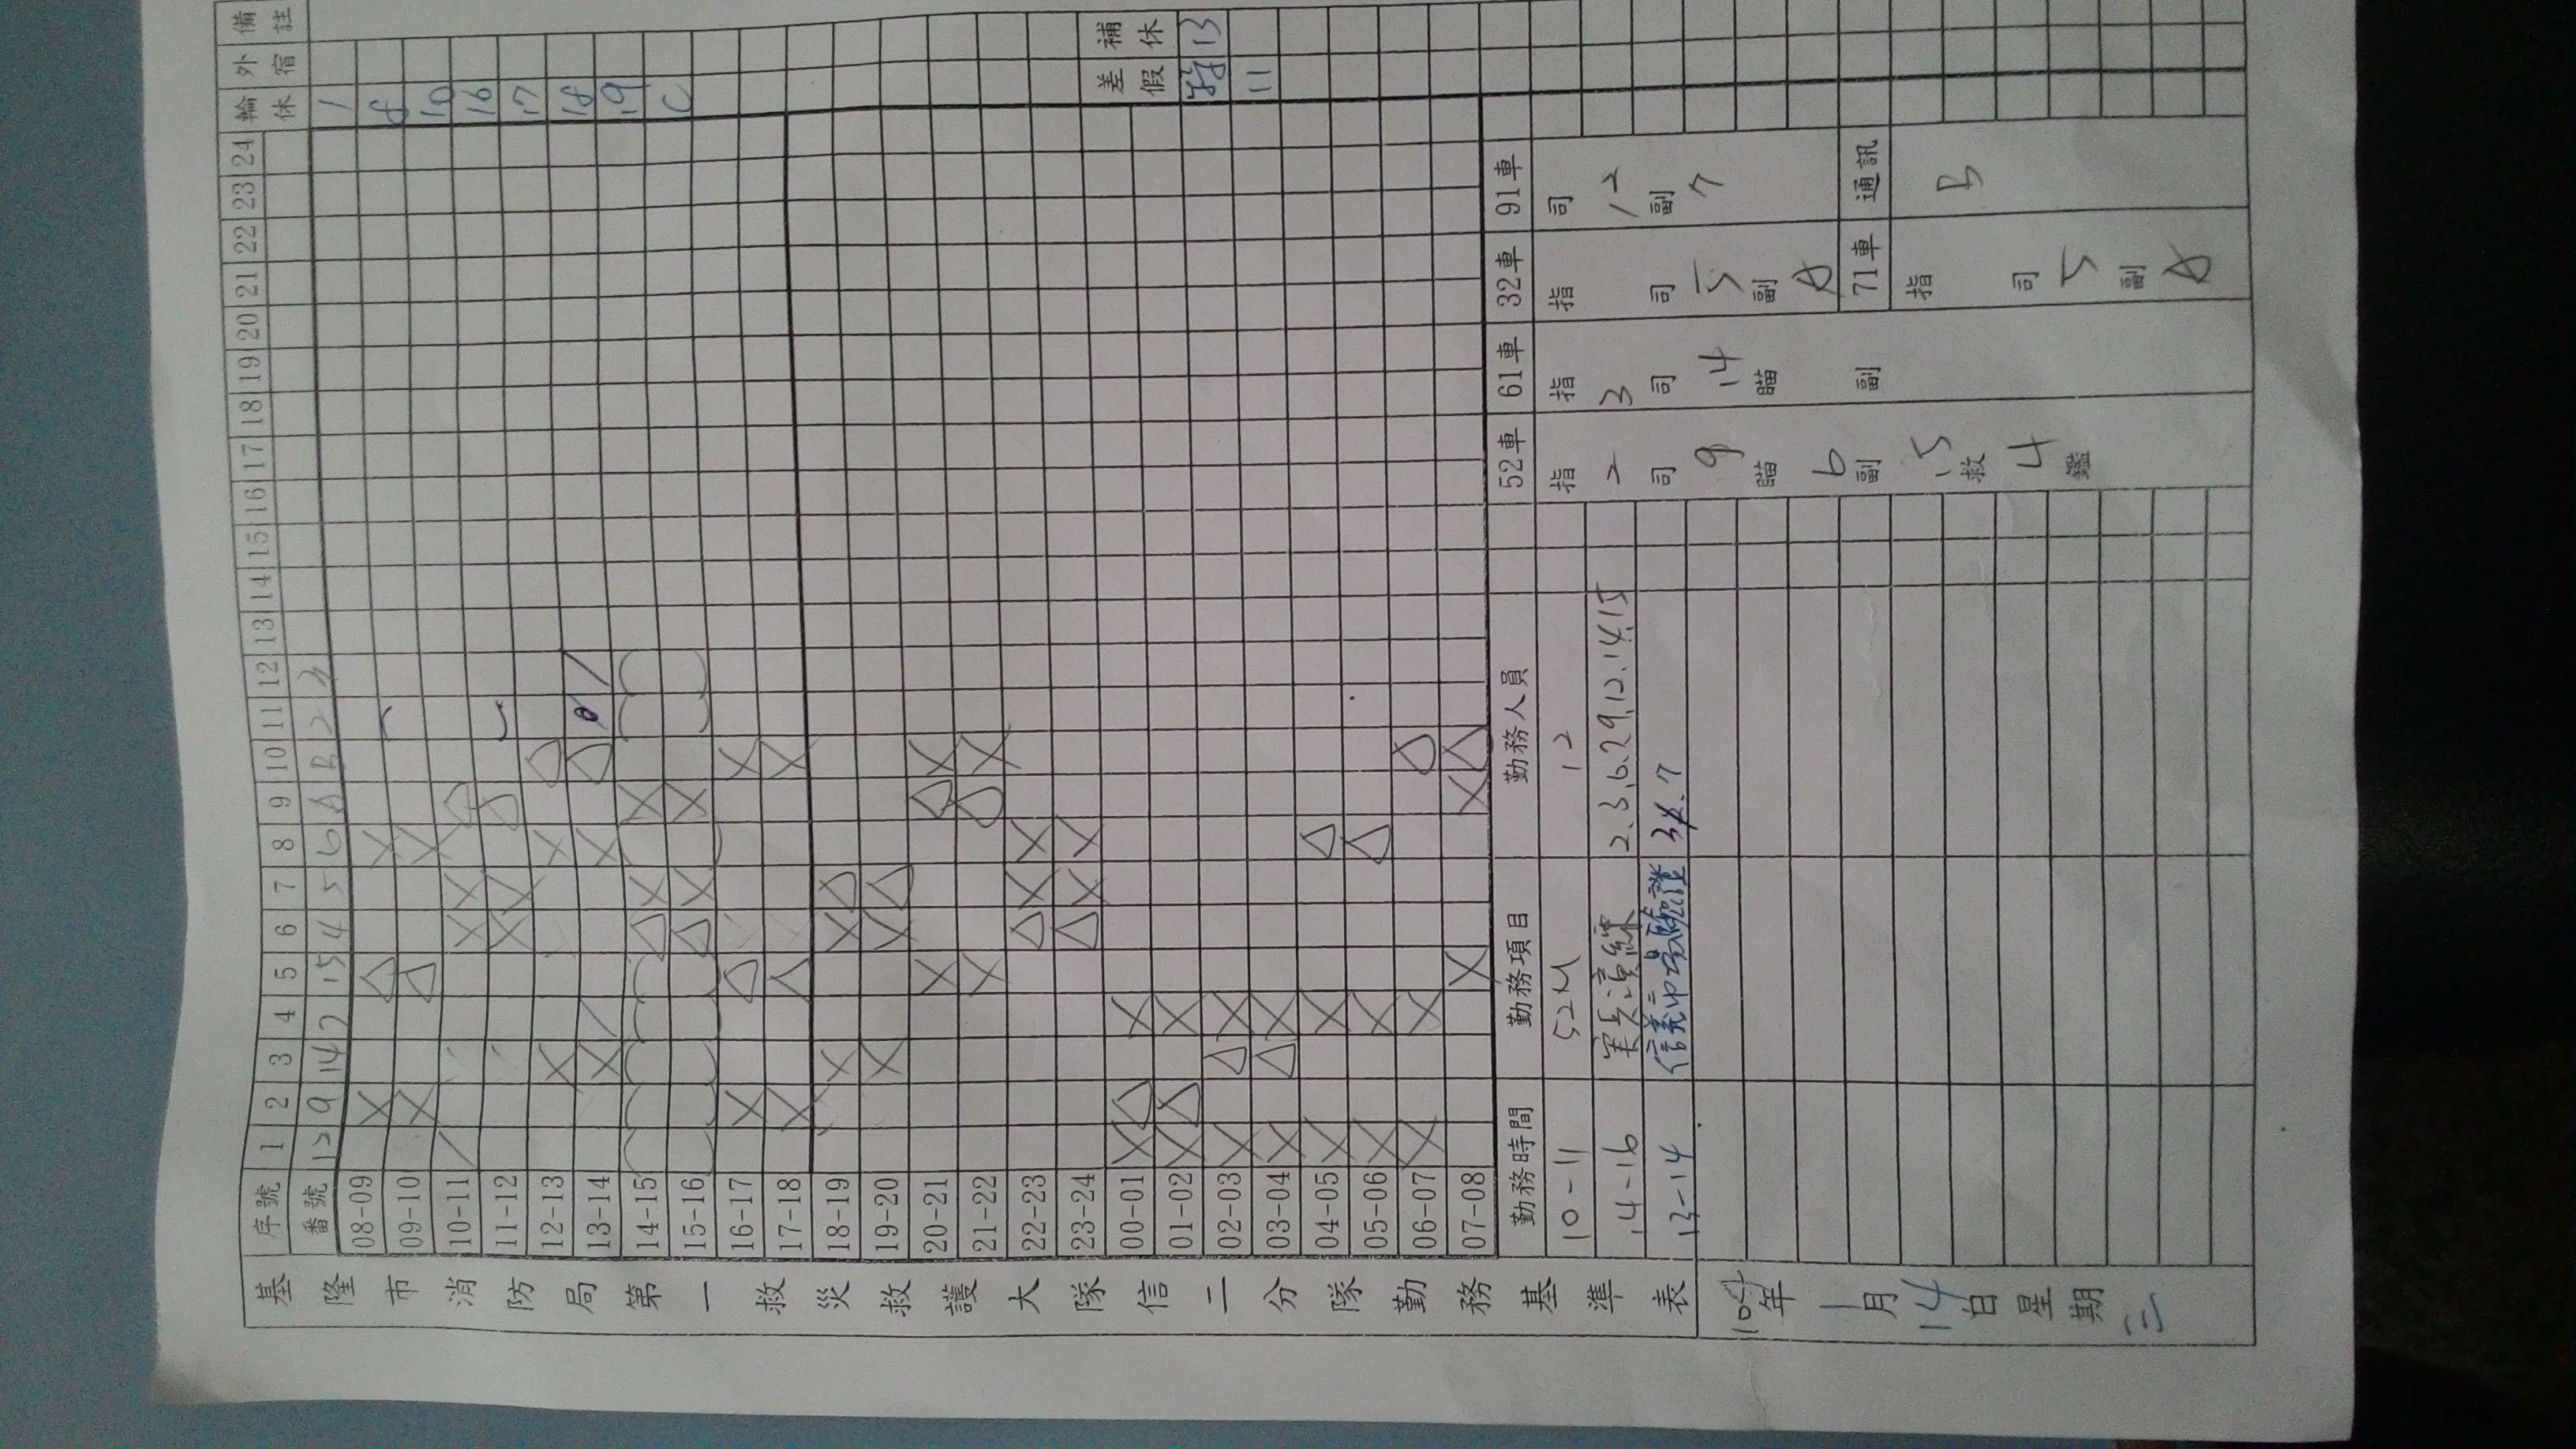 基隆市消防局第一救災救護大隊信二分隊勤務基準表
104年1月14日星期三
序號 1 2 3 4 5 6 7 8 9 10 11 12 13 14 15 16 17 18 19 20 21 22 23 24 輪休 外宿 備註
番號 12 9 14 7 15 4 5 6 A B 2 3
1
8
10
16
17
18
19
C
08-09 X △ X
09-10 X △ X
10-11 / X X △
11-12 X X △
12-13 X X △
13-14 X / X △ /
14-15 △ X X
15-16 △ X X
16-17 X △ X
17-18 X △ X
18-19 X X △
19-20 X X △
20-21 X △ X
21-22 X △ X
22-23 △ X X
23-24 △ X X
00-01 X △ X
01-02 X △ X
02-03 X △ X
03-04 X △ X
04-05 X X △
05-06 X X △
06-07 X X △
07-08 X X △
差假 補休
特 13
11
勤務時間 勤務項目 勤務人員
10-11 52M 12
14-16 実兵演練 2.3.6.7.9.12.14.15
13-14 信義市場驗證 3 7
52車
指
2
司
9
瞄
6
副
15
救
4
鑑
61車
指
3
司
14
瞄
副
32車
指
司
5
副
A
91車
司
12
副
7
71車
指
司
5
副
A
通訊
B